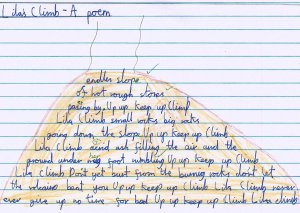 Lilas Climb - A poem
endless slope
of hot rough stones
passing by Up up keep up Climb
Lila Climb small rocks big rocks
going down the slope Up up keep up Climb
Lila Climb acid ash filling the air and the
ground under her foot rumbling Up up keep up Climb
Lila Climb Don't get burnt from the burning rocks dont let
the volcano beat you Up up keep up Climb Lila Climb never
ever give up no time for bed Up up keep up Climb Lila climb